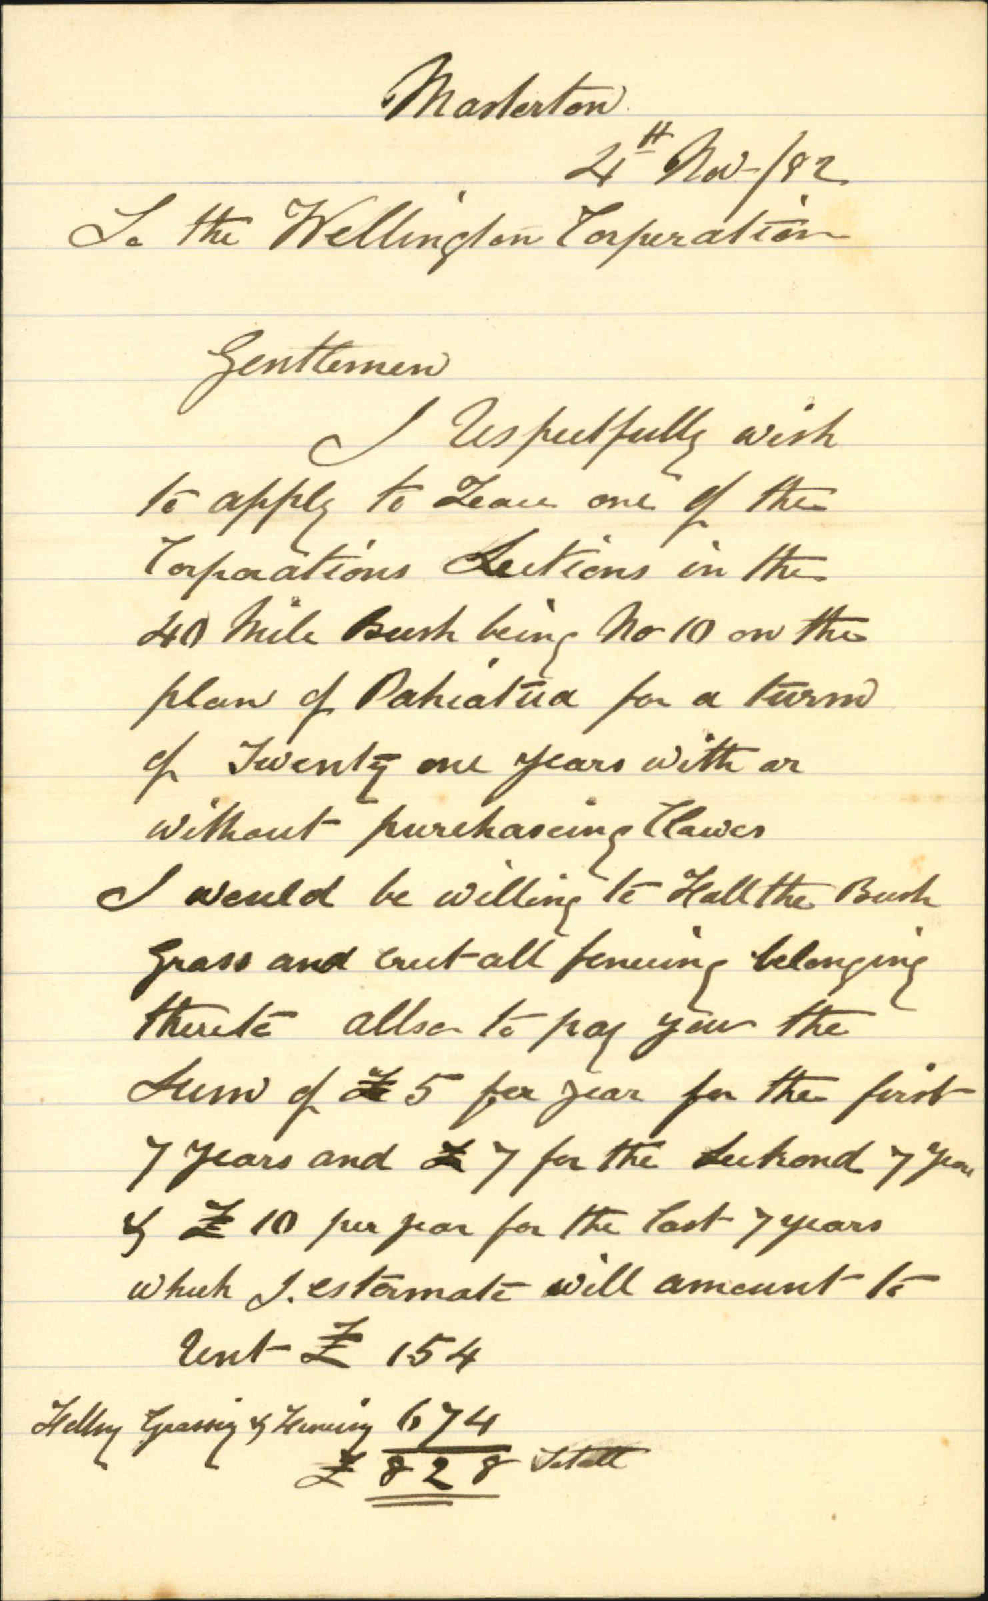 Masterton
4th Nov /82
To the Wellington Corperation
Gentlemen
I Respectfully wish
to apply to Lease one of the
Corporations Sections in the
40 Mile Bush being No 10 on the
plan of Pahiatua for a turm
of Twenty one years with or
without purchaseing Clawes
I would be willing to Fall the Bush
Grass and erect all fenceing belonging
thereto allso to pay you the
Sum of £5 per year for the first
7 Years and £7 for the Seckond 7 Years
& £10 per year for the last 7 years
which I estermate will amount to
Rent £ 154
Felling Grassing & Fencing 674
£ 828 Totall